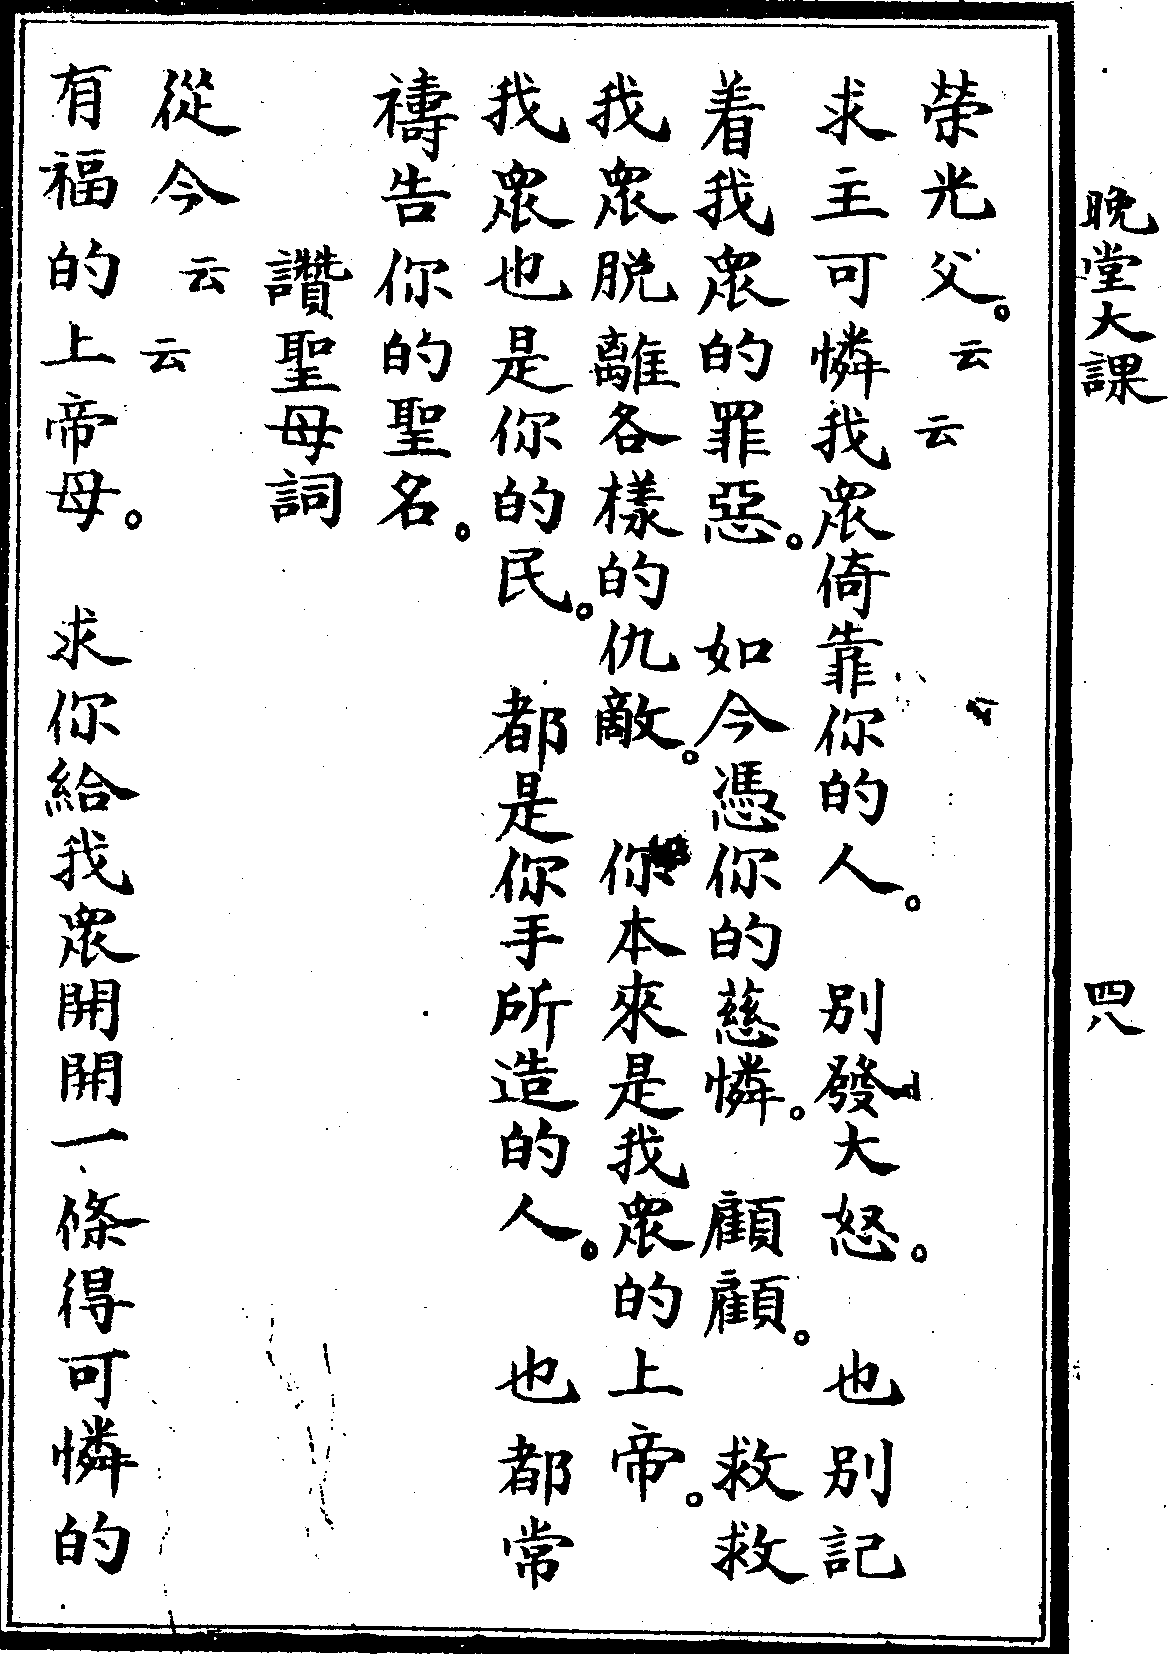 晚堂大課 四八
榮光父。云云
求主可憐我眾倚靠你的人。 別發大怒。 也別記
着我眾的罪惡。 如今憑你的慈憐。 顧顧。 救救
我眾脫離各樣的仇敵。 你本來是我眾的上帝。
我眾也是你的民。 都是你手所造的人。 也都常
禱告你的聖名。
讚聖母詞
從今云云
有福的上帝母。 求你給我眾開開一條得可憐的